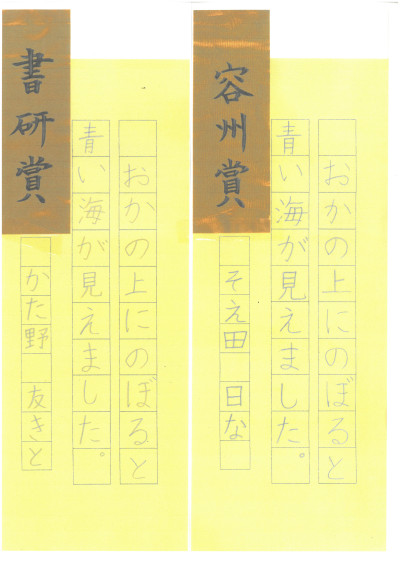 おかの上にのぼると
青い海が見えました。
容州賞
そえ田　日な
おかの上にのぼると
青い海が見えました。
書研賞
かた野　友きと